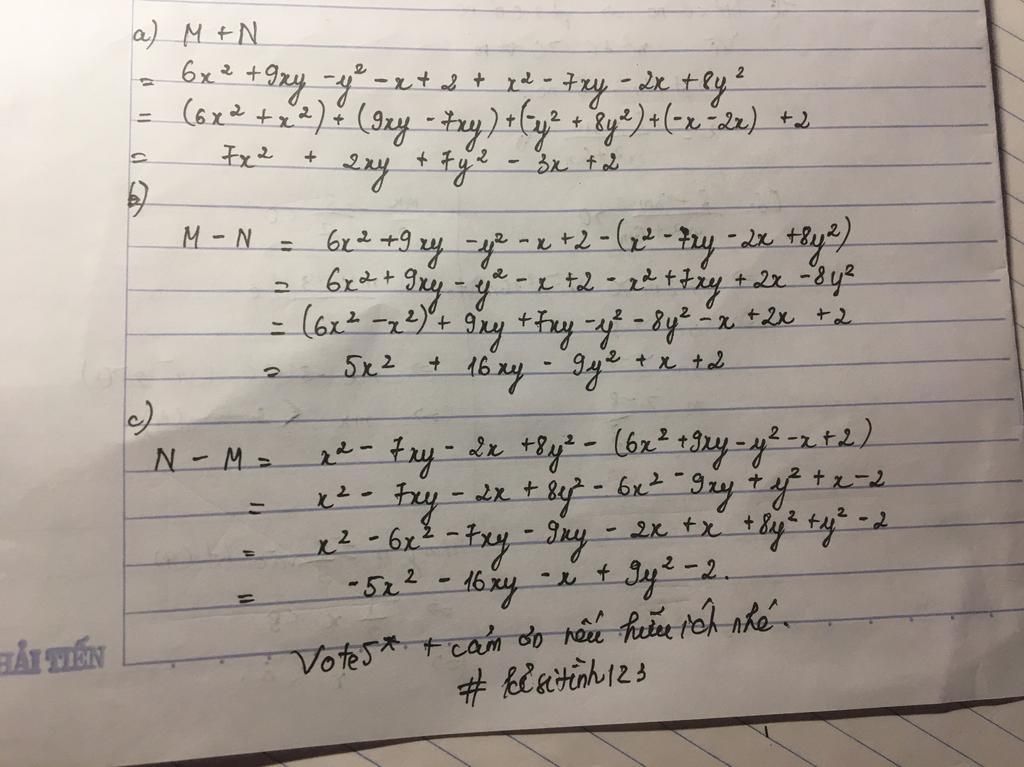 a) M + N
= 6x² + 9xy - y² - x + 2 + x² - 7xy - 2x + 8y²
= (6x² + x²) + (9xy - 7xy) + (-y² + 8y²) + (-x - 2x) + 2
= 7x² + 2xy + 7y² - 3x + 2
b)
M - N = 6x² + 9xy - y² - x + 2 - (x² - 7xy - 2x + 8y²)
= 6x² + 9xy - y² - x + 2 - x² + 7xy + 2x - 8y²
= (6x² - x²) + 9xy + 7xy - y² - 8y² - x + 2x + 2
= 5x² + 16xy - 9y² + x + 2
c)
N - M = x² - 7xy - 2x + 8y² - (6x² + 9xy - y² - x + 2)
= x² - 7xy - 2x + 8y² - 6x² - 9xy + y² + x - 2
= x² - 6x² - 7xy - 9xy - 2x + x + 8y² + y² - 2
= -5x² - 16xy - x + 9y² - 2.
Vote 5* + cảm ơn nếu hữu ích nhé.
# kẻsitình123
HẢI TIẾN